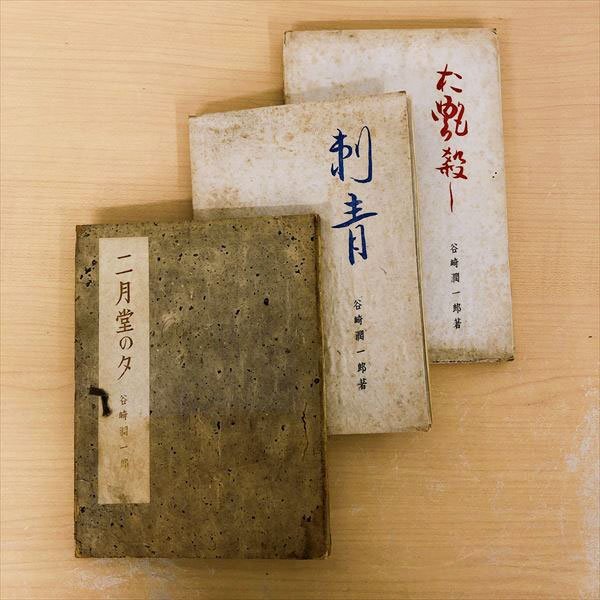 お艶殺し
谷崎潤一郎著
刺青
谷崎潤一郎著
二月堂の夕
谷崎潤一郎